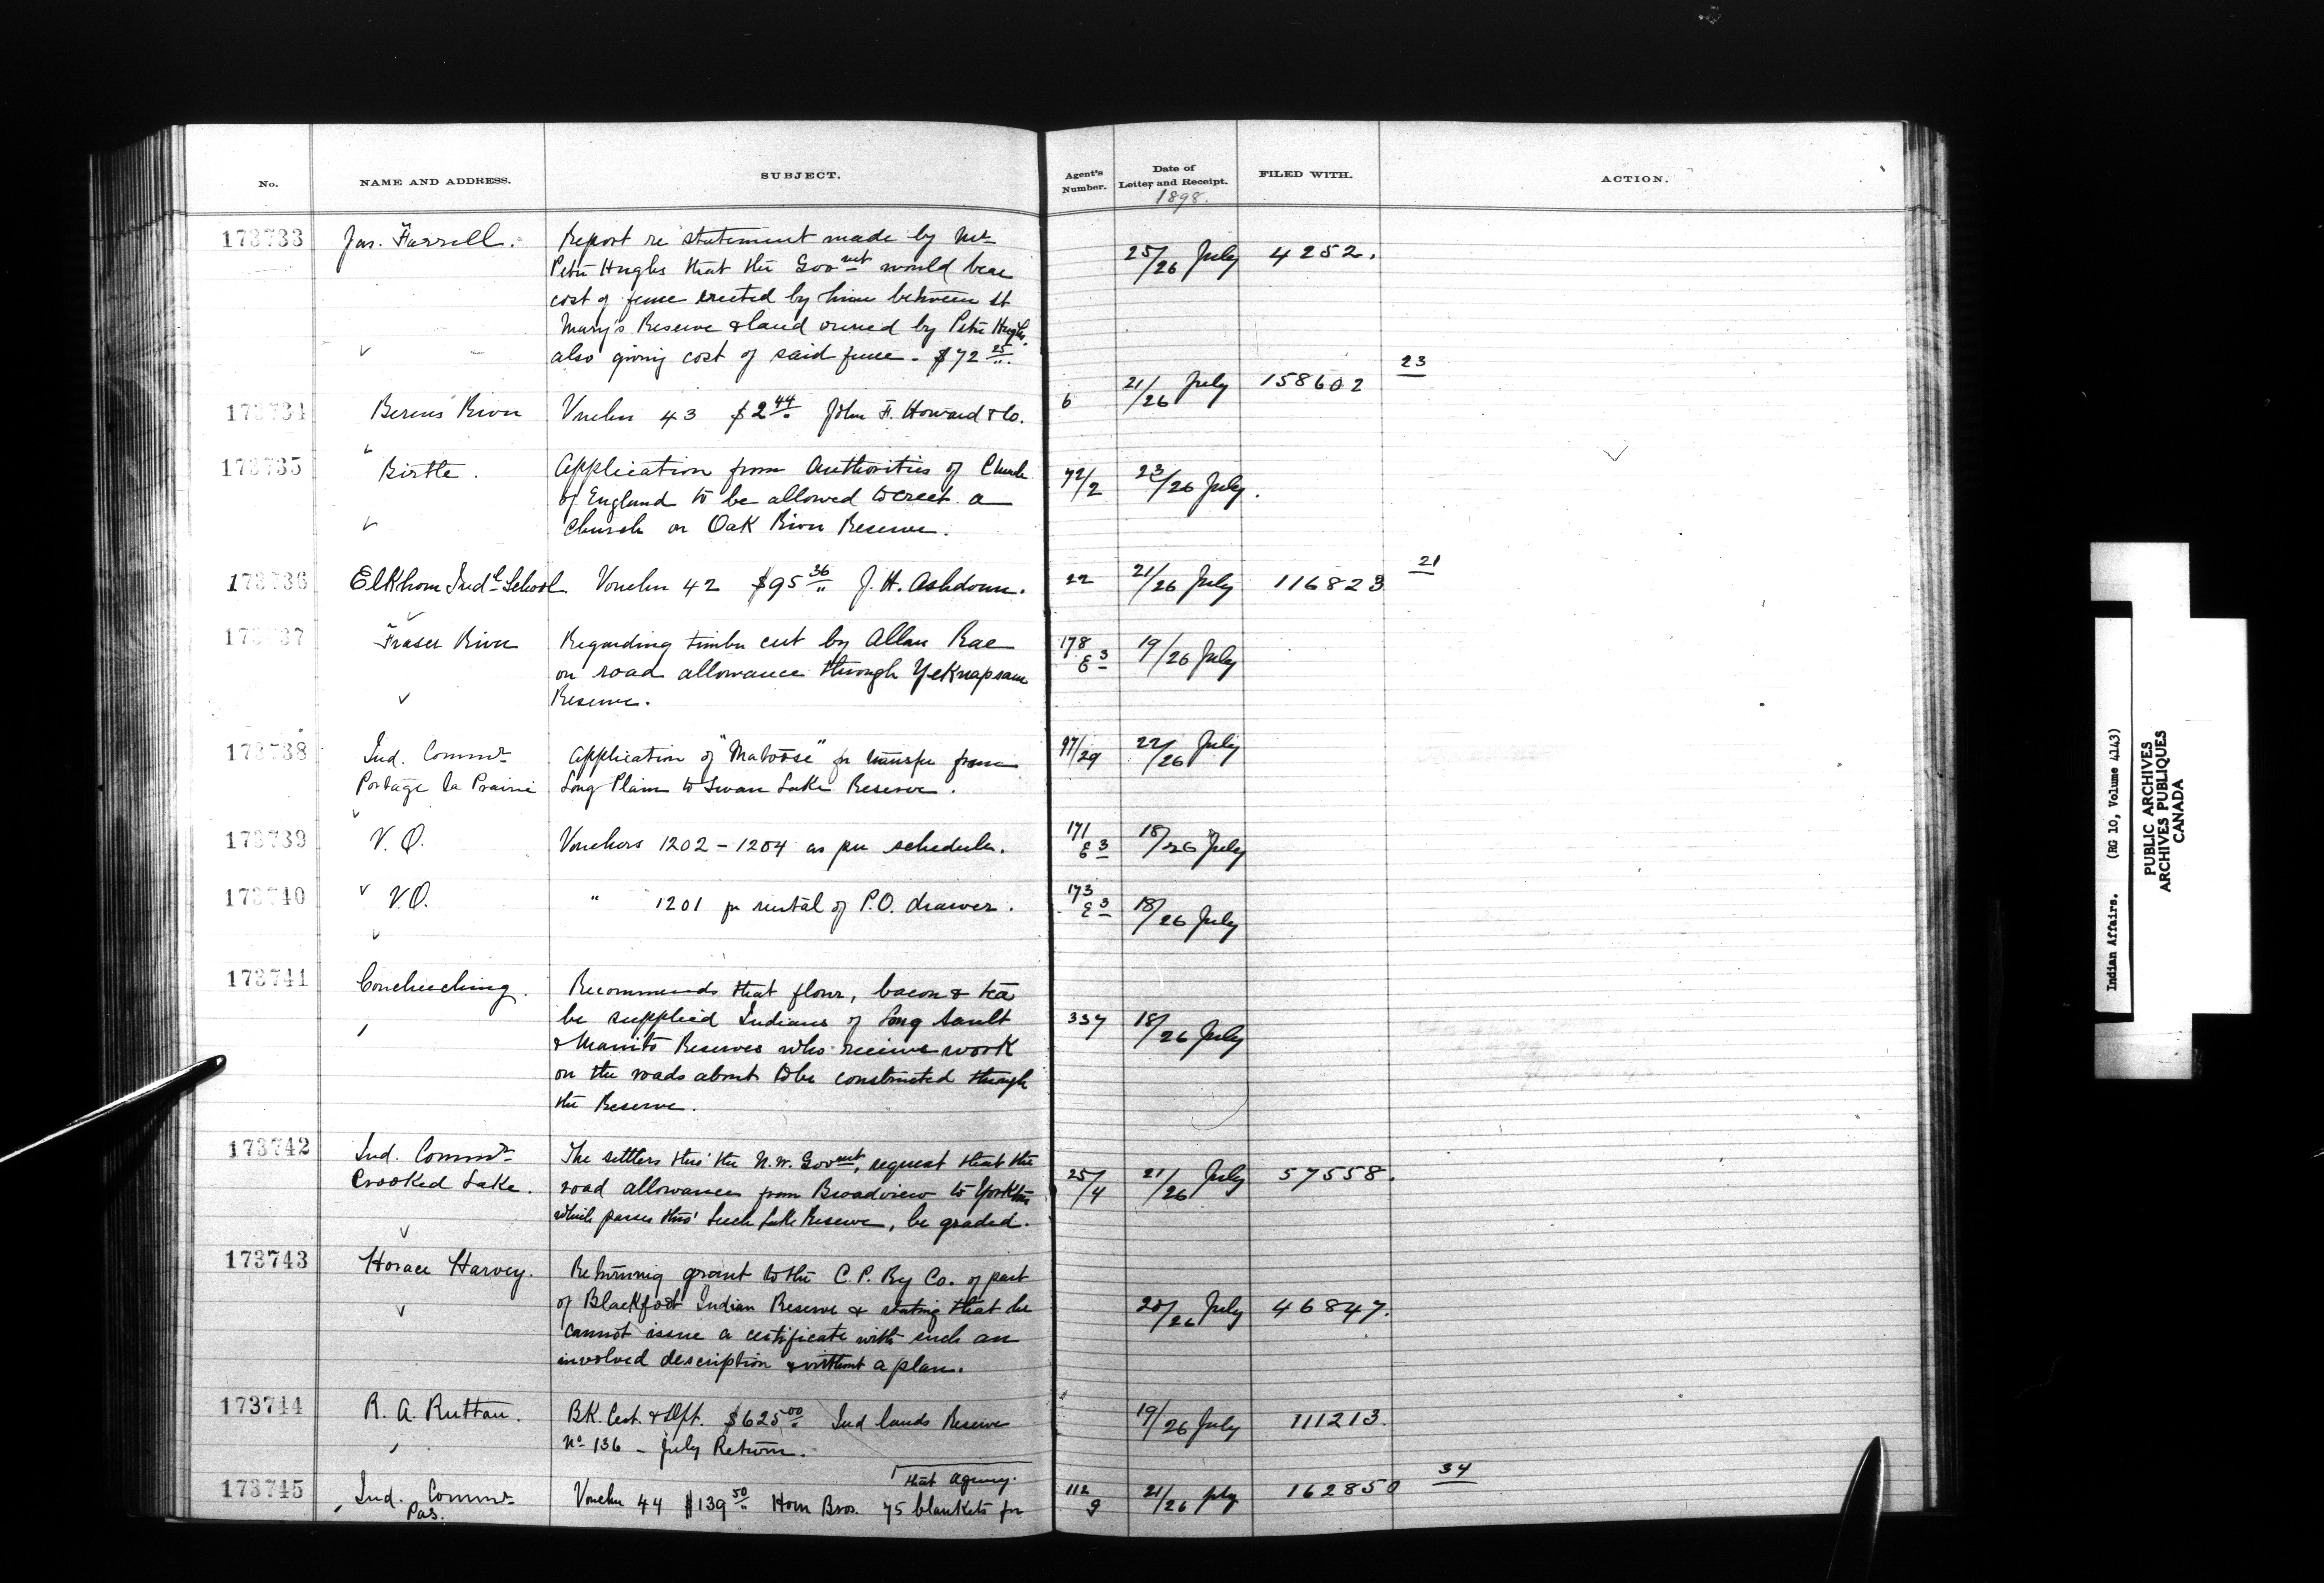 No. NAME AND ADDRESS. SUBJECT. Agent's Number. Date of Letter and Receipt. 1898. FILED WITH. ACTION.
173733 Jas. Farrell. Report re statement made by Mr 25/26 July 4252.
Peter Hughs that the Govmt would bear
cost of fence erected by him between St
Mary's Reserve & land owned by Peter Hughs.
also giving cost of said fence - $72 25/..
173734 Berens River Voucher 43 $2 44 John F. Howard & Co. 6 21/26 July 158602 23
173735 Birtle. Application from Authorities of Church 72/2 23/26 July.
of England to be allowed to erect a
Church on Oak River Reserve.
173736 Elkhorn Indl School. Voucher 42 $95 36 J. H. Ashdown. 22 21/26 July 116823 21
173737 Fraser River Regarding timber cut by Allan Rae 178 E 3 19/26 July
on road allowance through Yeknapsam
Reserve.
173738 Ind. Commr Application of "Matoose" for transfer from 97/29 22/26 July
Portage la Prairie Long Plain to Swan Lake Reserve.
173739 V.O. Vouchers 1202 - 1204 as per schedule. 171 E 3 18/26 July
173740 V.O. " 1201 for rental of P.O. drawer. 173 E 3 18/26 July
173741 Couchiching. Recommends that flour, bacon & tea
be supplied Indians of Long Sault 337 18/26 July
& Manito Reserves who receive work
on the roads about to be constructed through
the Reserve.
173742 Ind. Commr The settlers thro' the N.W. Govmt, request that the
Crooked Lake. road allowance from Broadview to Yorkton 25/4 21/26 July 57558.
which passes thro' Leech Lake Reserve, be graded.
173743 Horace Harvey. Returning grant to the C. P. Ry Co. of part
of Blackfoot Indian Reserve & stating that he 20/26 July 46847.
cannot issue a certificate with such an
involved description & without a plan.
173744 R. A. Ruttan. BK. Cert. & Dft. $625 00 Ind lands Reserve 19/26 July 111213.
No 136 - July Return.
that Agency.
173745 Ind. Commr Voucher 44 $139 50 Horn Bros. 75 blankets for 112/9 21/26 July 162850 34
Pas.
Indian Affairs. (RG 10, Volume 4143)
PUBLIC ARCHIVES
ARCHIVES PUBLIQUES
CANADA